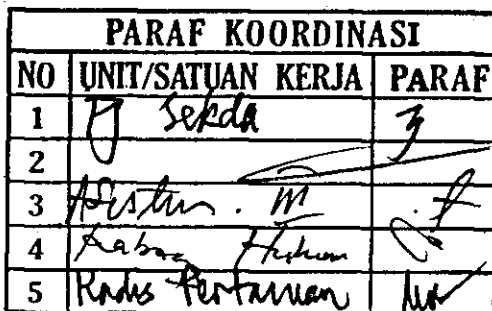 PARAF KOORDINASI
NO UNIT/SATUAN KERJA PARAF
1 Sekda
2
3 Asisten . III
4 Kabag Hukum
5 Kadis Pertanian